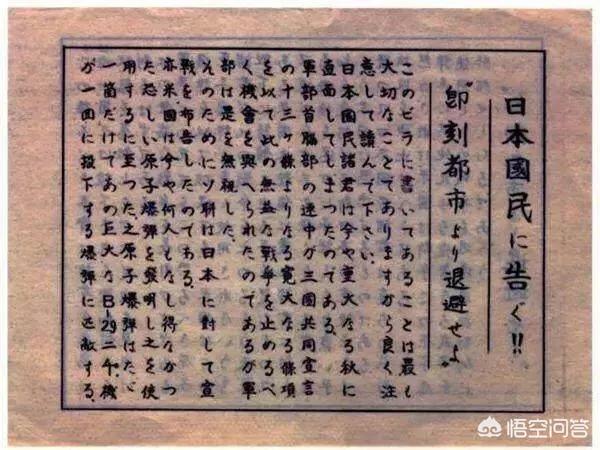 日本國民に告ぐ!!
"即刻都市より退避せよ"
このビラに書いてあることは最も
大切なことでありますから良く注
意して讀んで下さい。
日本國民諸君は今や重大なる秋に
直面してしまったのである。
軍部首脳部の連中が三國共同宣言
の十三ヶ條よりなる寛大なる條項
を以て此の無益な戰爭を止めるべ
く機會を與へられたのであるが軍
部は是を無視した。
そのためにソ聯は日本に對して宣
戰を布告したのである。
亦米國は今や何人もなし得なかっ
た恐しい原子爆彈を發明し之を使
用するに至った。之原子爆彈はたゞ
一箇だけであの巨大なB-29二千機
が一回に投下する爆彈に匹敵する。
悟空问答